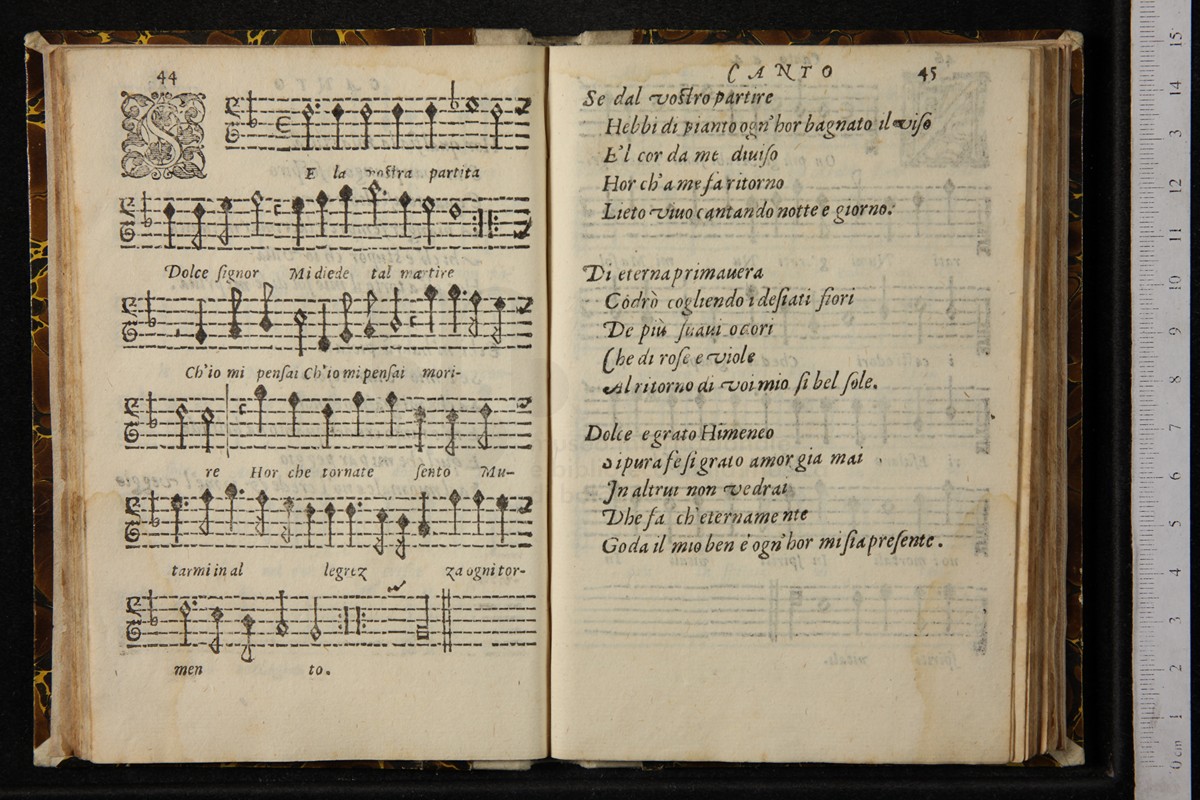 44
S
E la vostra partita
Dolce ſignor Mi diede tal martire
Ch'io mi penſai Ch'io mi penſai mori-
re Hor che tornate ſento Mu-
tarmi in al legrez za ogni tor-
men to.
CANTO 45
Se dal voſtro partire
Hebbi di pianto ogn'hor bagnato il viſo
E'l cor da me diuiſo
Hor ch'a me fa ritorno
Lieto viuo cantando notte e giorno.
Di eterna primauera
Códrò cogliendo i deſiati fiori
De più ſuaui odori
Che di roſe e viole
Al ritorno di voi mio ſi bel ſole.
Dolce e grato Himeneo
ſi pura fe ſi grato amor gia mai
In altrui non vedrai
Dhe fa ch'eternamente
Goda il mio ben e ogn'hor mi ſia preſente.
15
14
13
12
11
10
9
8
7
6
5
4
3
2
1
0 cm